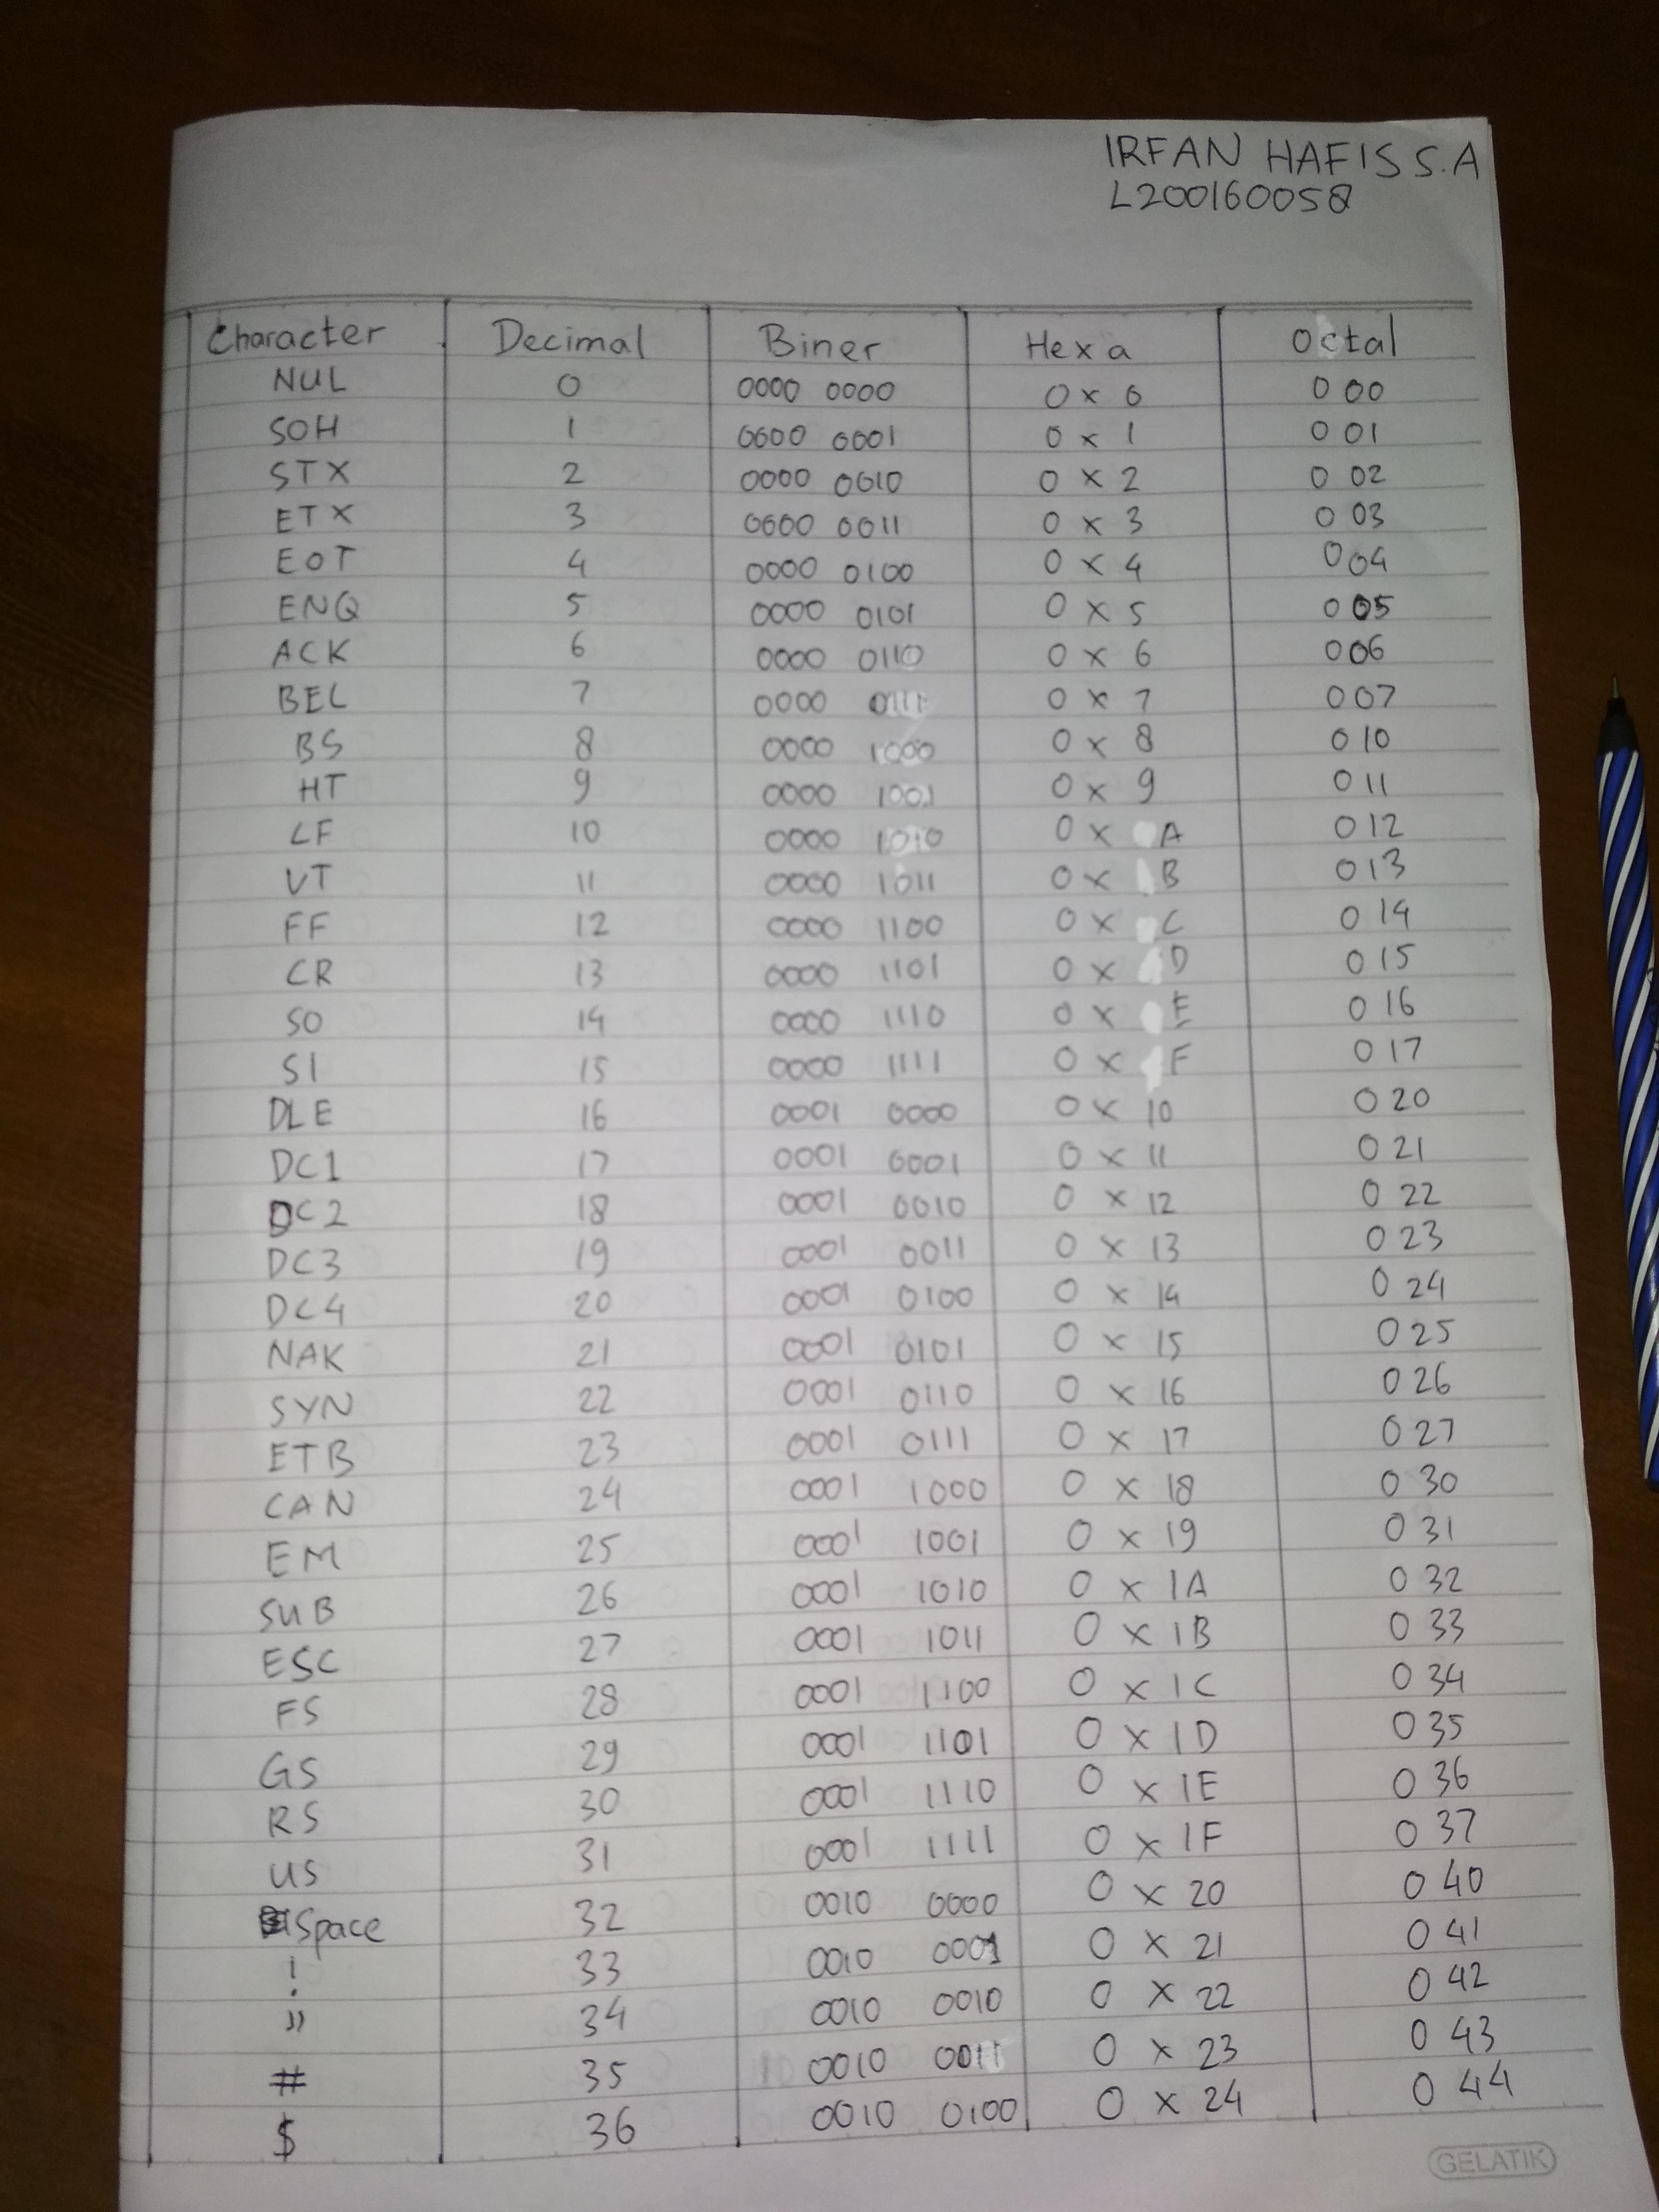 IRFAN HAFIS S.A
L200160058
Character Decimal Biner Hexa Octal
NUL 0 0000 0000 0 x 0 0 00
SOH 1 0000 0001 0 x 1 0 01
STX 2 0000 0010 0 x 2 0 02
ETX 3 0000 0011 0 x 3 0 03
EOT 4 0000 0100 0 x 4 0 04
ENQ 5 0000 0101 0 x 5 0 05
ACK 6 0000 0110 0 x 6 0 06
BEL 7 0000 0111 0 x 7 0 07
BS 8 0000 1000 0 x 8 0 10
HT 9 0000 1001 0 x 9 0 11
LF 10 0000 1010 0 x A 0 12
VT 11 0000 1011 0 x B 0 13
FF 12 0000 1100 0 x C 0 14
CR 13 0000 1101 0 x D 0 15
SO 14 0000 1110 0 x E 0 16
SI 15 0000 1111 0 x F 0 17
DLE 16 0001 0000 0 x 10 0 20
DC1 17 0001 0001 0 x 11 0 21
DC2 18 0001 0010 0 x 12 0 22
DC3 19 0001 0011 0 x 13 0 23
DC4 20 0001 0100 0 x 14 0 24
NAK 21 0001 0101 0 x 15 0 25
SYN 22 0001 0110 0 x 16 0 26
ETB 23 0001 0111 0 x 17 0 27
CAN 24 0001 1000 0 x 18 0 30
EM 25 0001 1001 0 x 19 0 31
SUB 26 0001 1010 0 x 1A 0 32
ESC 27 0001 1011 0 x 1B 0 33
FS 28 0001 1100 0 x 1C 0 34
GS 29 0001 1101 0 x 1D 0 35
RS 30 0001 1110 0 x 1E 0 36
US 31 0001 1111 0 x 1F 0 37
Space 32 0010 0000 0 x 20 0 40
! 33 0010 0001 0 x 21 0 41
" 34 0010 0010 0 x 22 0 42
# 35 0010 0011 0 x 23 0 43
$ 36 0010 0100 0 x 24 0 44
GELATIK